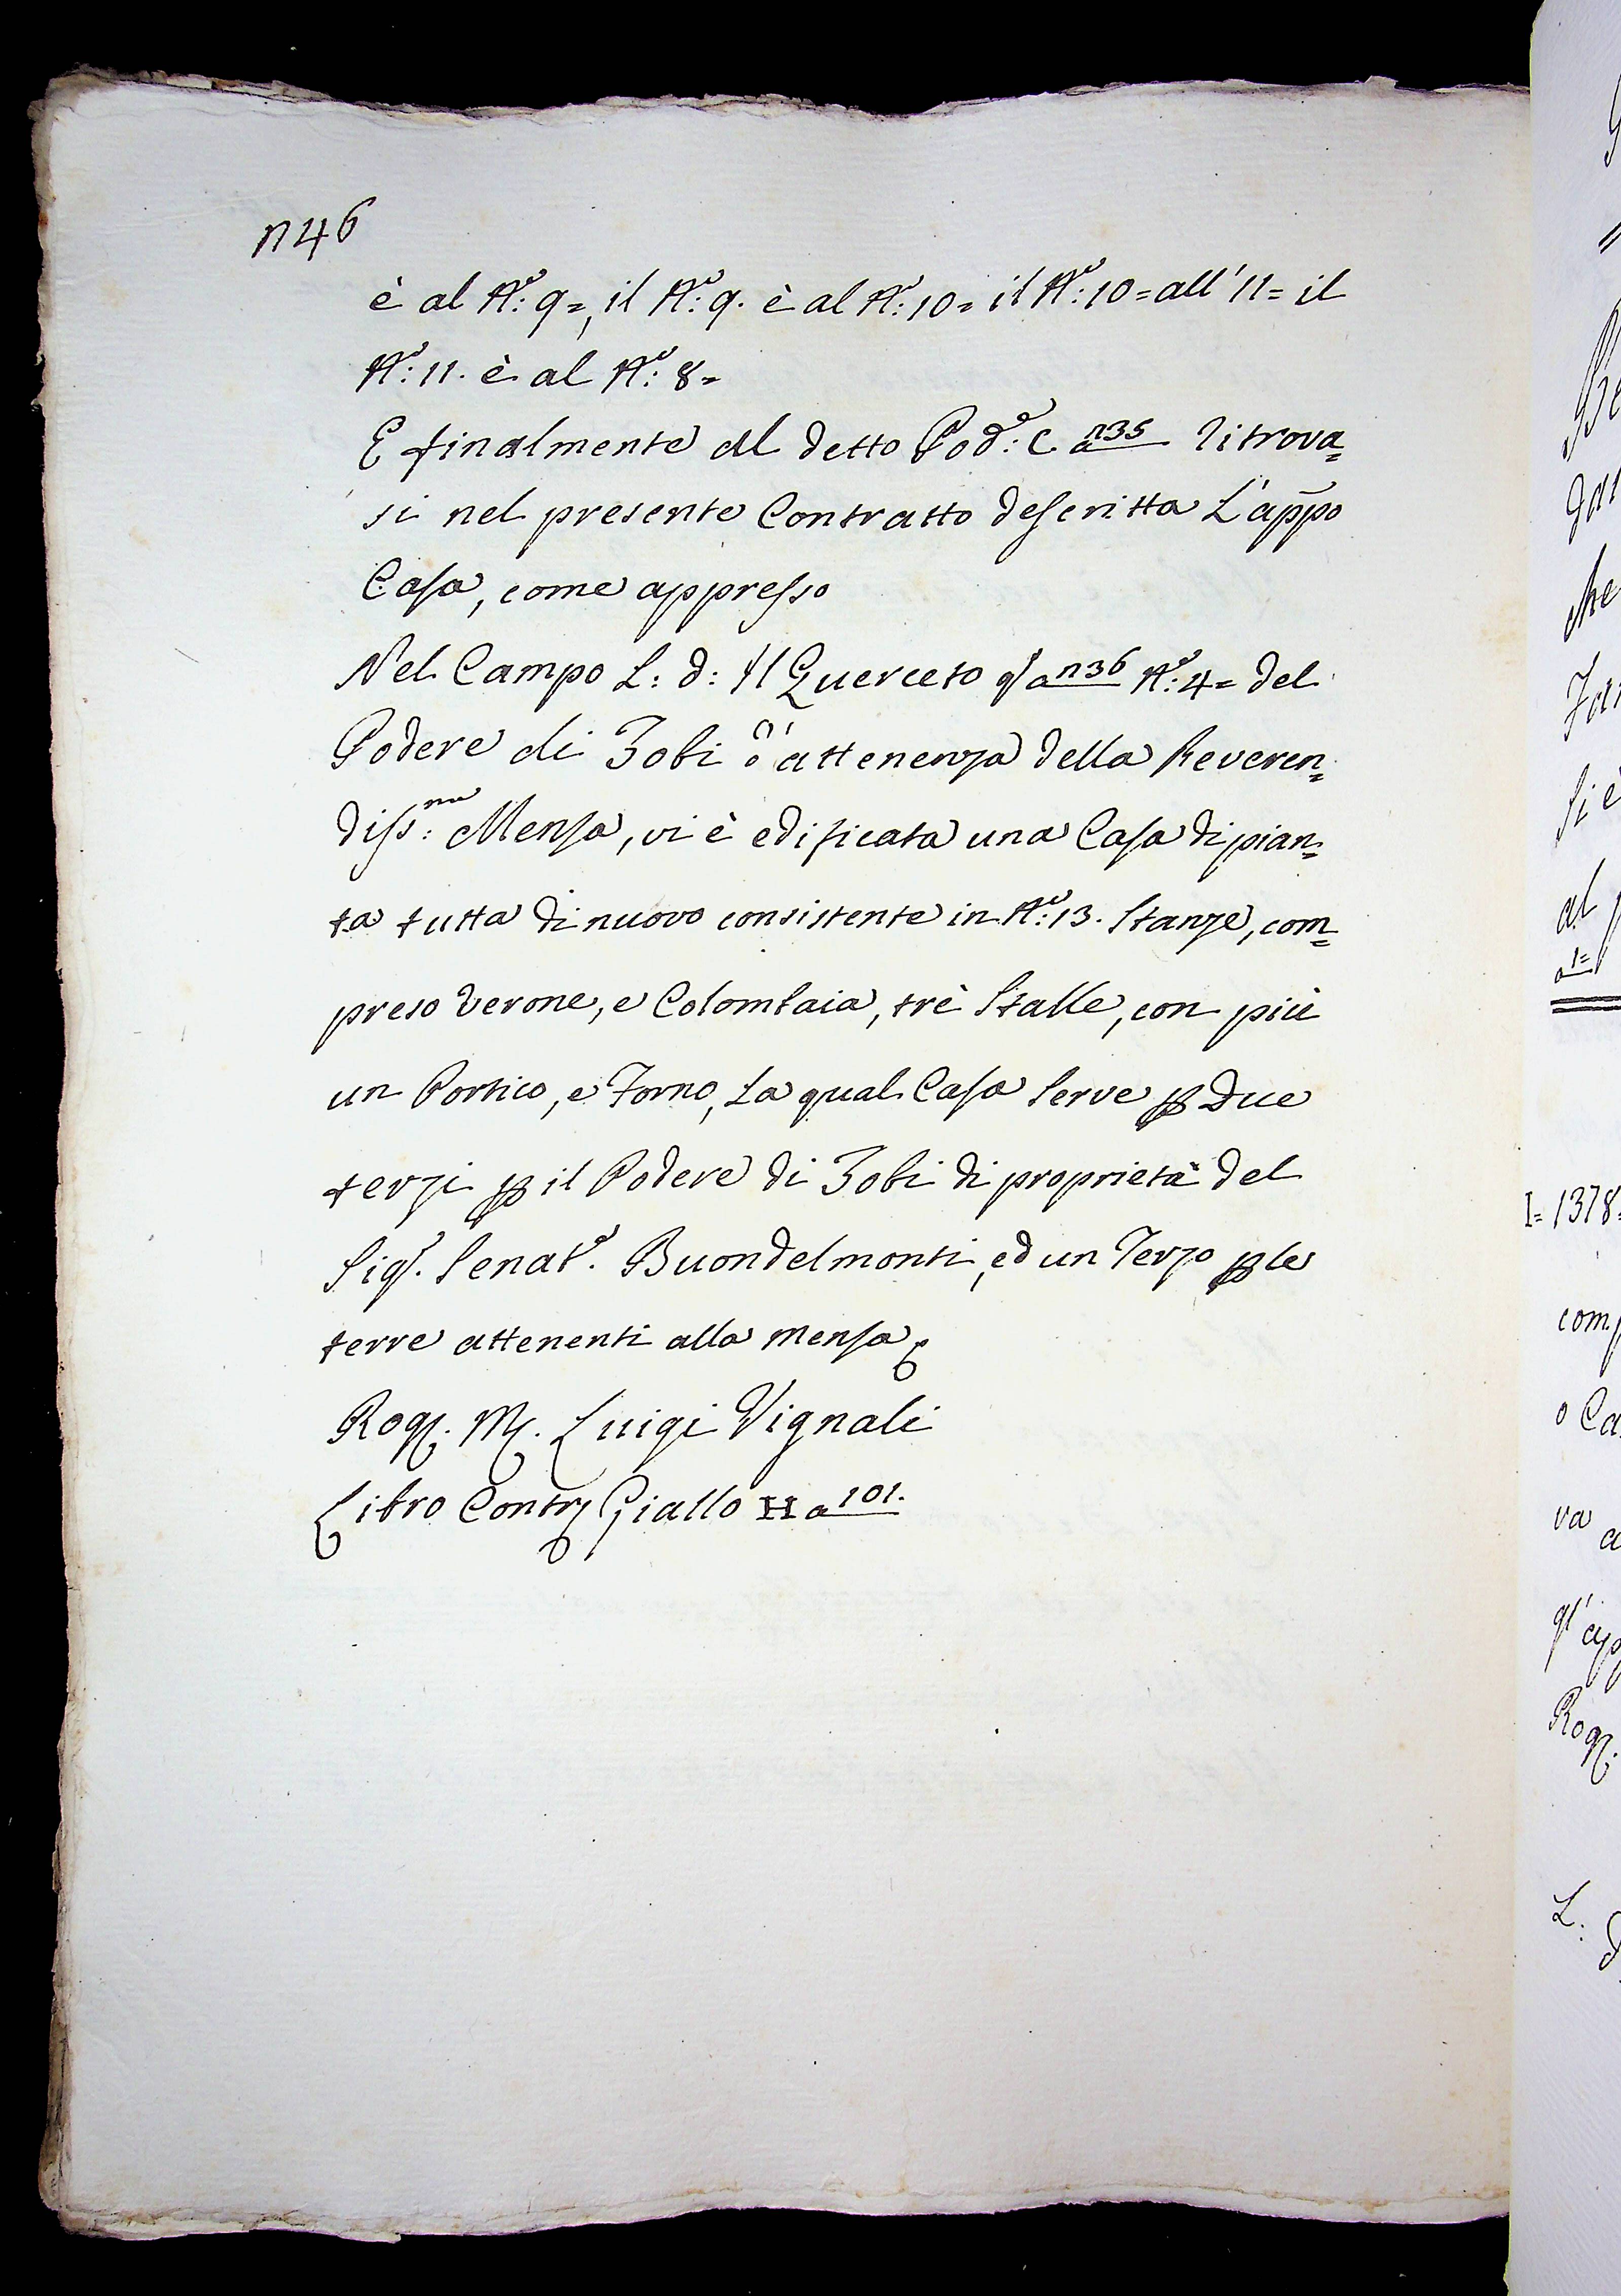 n46
è al N.º: 9=, il N.º: 9. è al N.º: 10= il N.º: 10= all' 11= il
N.º: 11. è al N.º: 8=
E finalmente al detto Pod.e: C a n35 ritrova=
si nel presente Contratto descritta L'appo
Casa, come appresso
Nel Campo L: d: Il Querceto a n36 N.º: 4= del
Podere di Zobi attenenza della Reveren=
diss:ma Mensa, vi è edificata una Casa di pian=
ta tutta di nuovo consistente in N.º: 13. Stanze, com=
preso Verone, e Colombaia, trè Stalle, con più
un Portico, e Forno, La qual Casa serve p Due
terzi p il Podere di Zobi di proprietà del
Sig.r Senat.e Buondelmonti, ed un Terzo p le
terre attenenti alla Mensa
Rog. M. Luigi Vignali
Libro Contr Giallo H a 101.